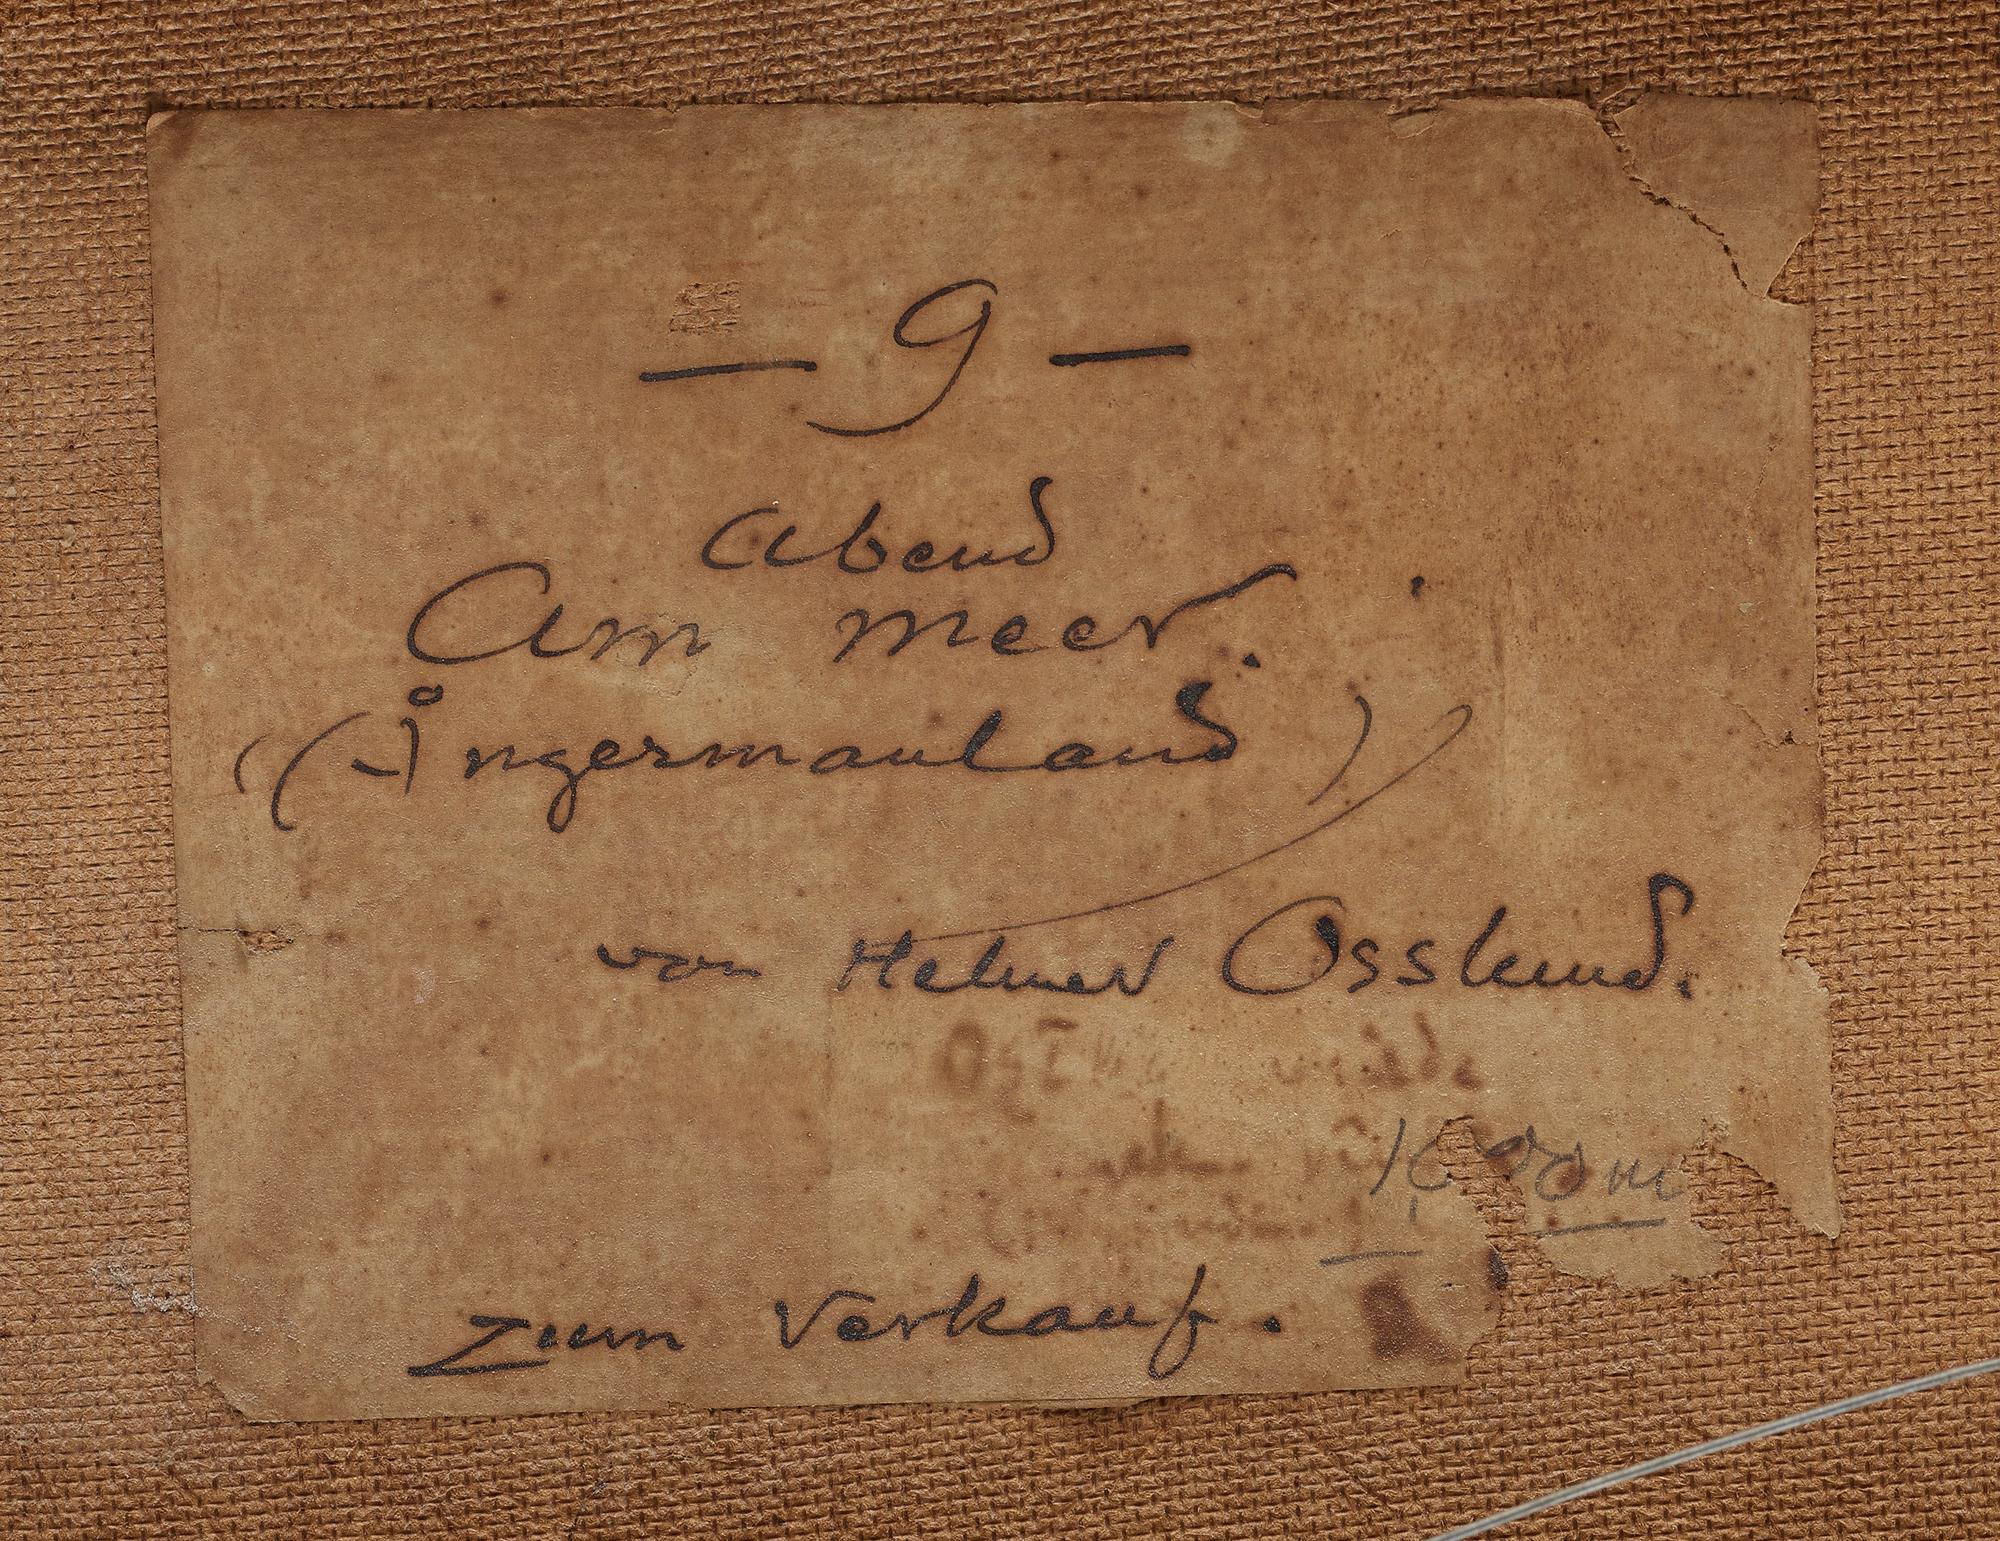 — 9 —
Abend
Am Meer.
((Ångermanland))
von Helmer Osslund.
Zum Verkauf.